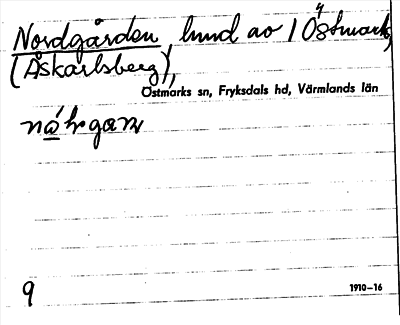 Nordgården hmd av 1 4 Östmark,
(Åskarlsberg),
Östmarks sn, Fryksdals hd, Värmlands län
9
1910–16